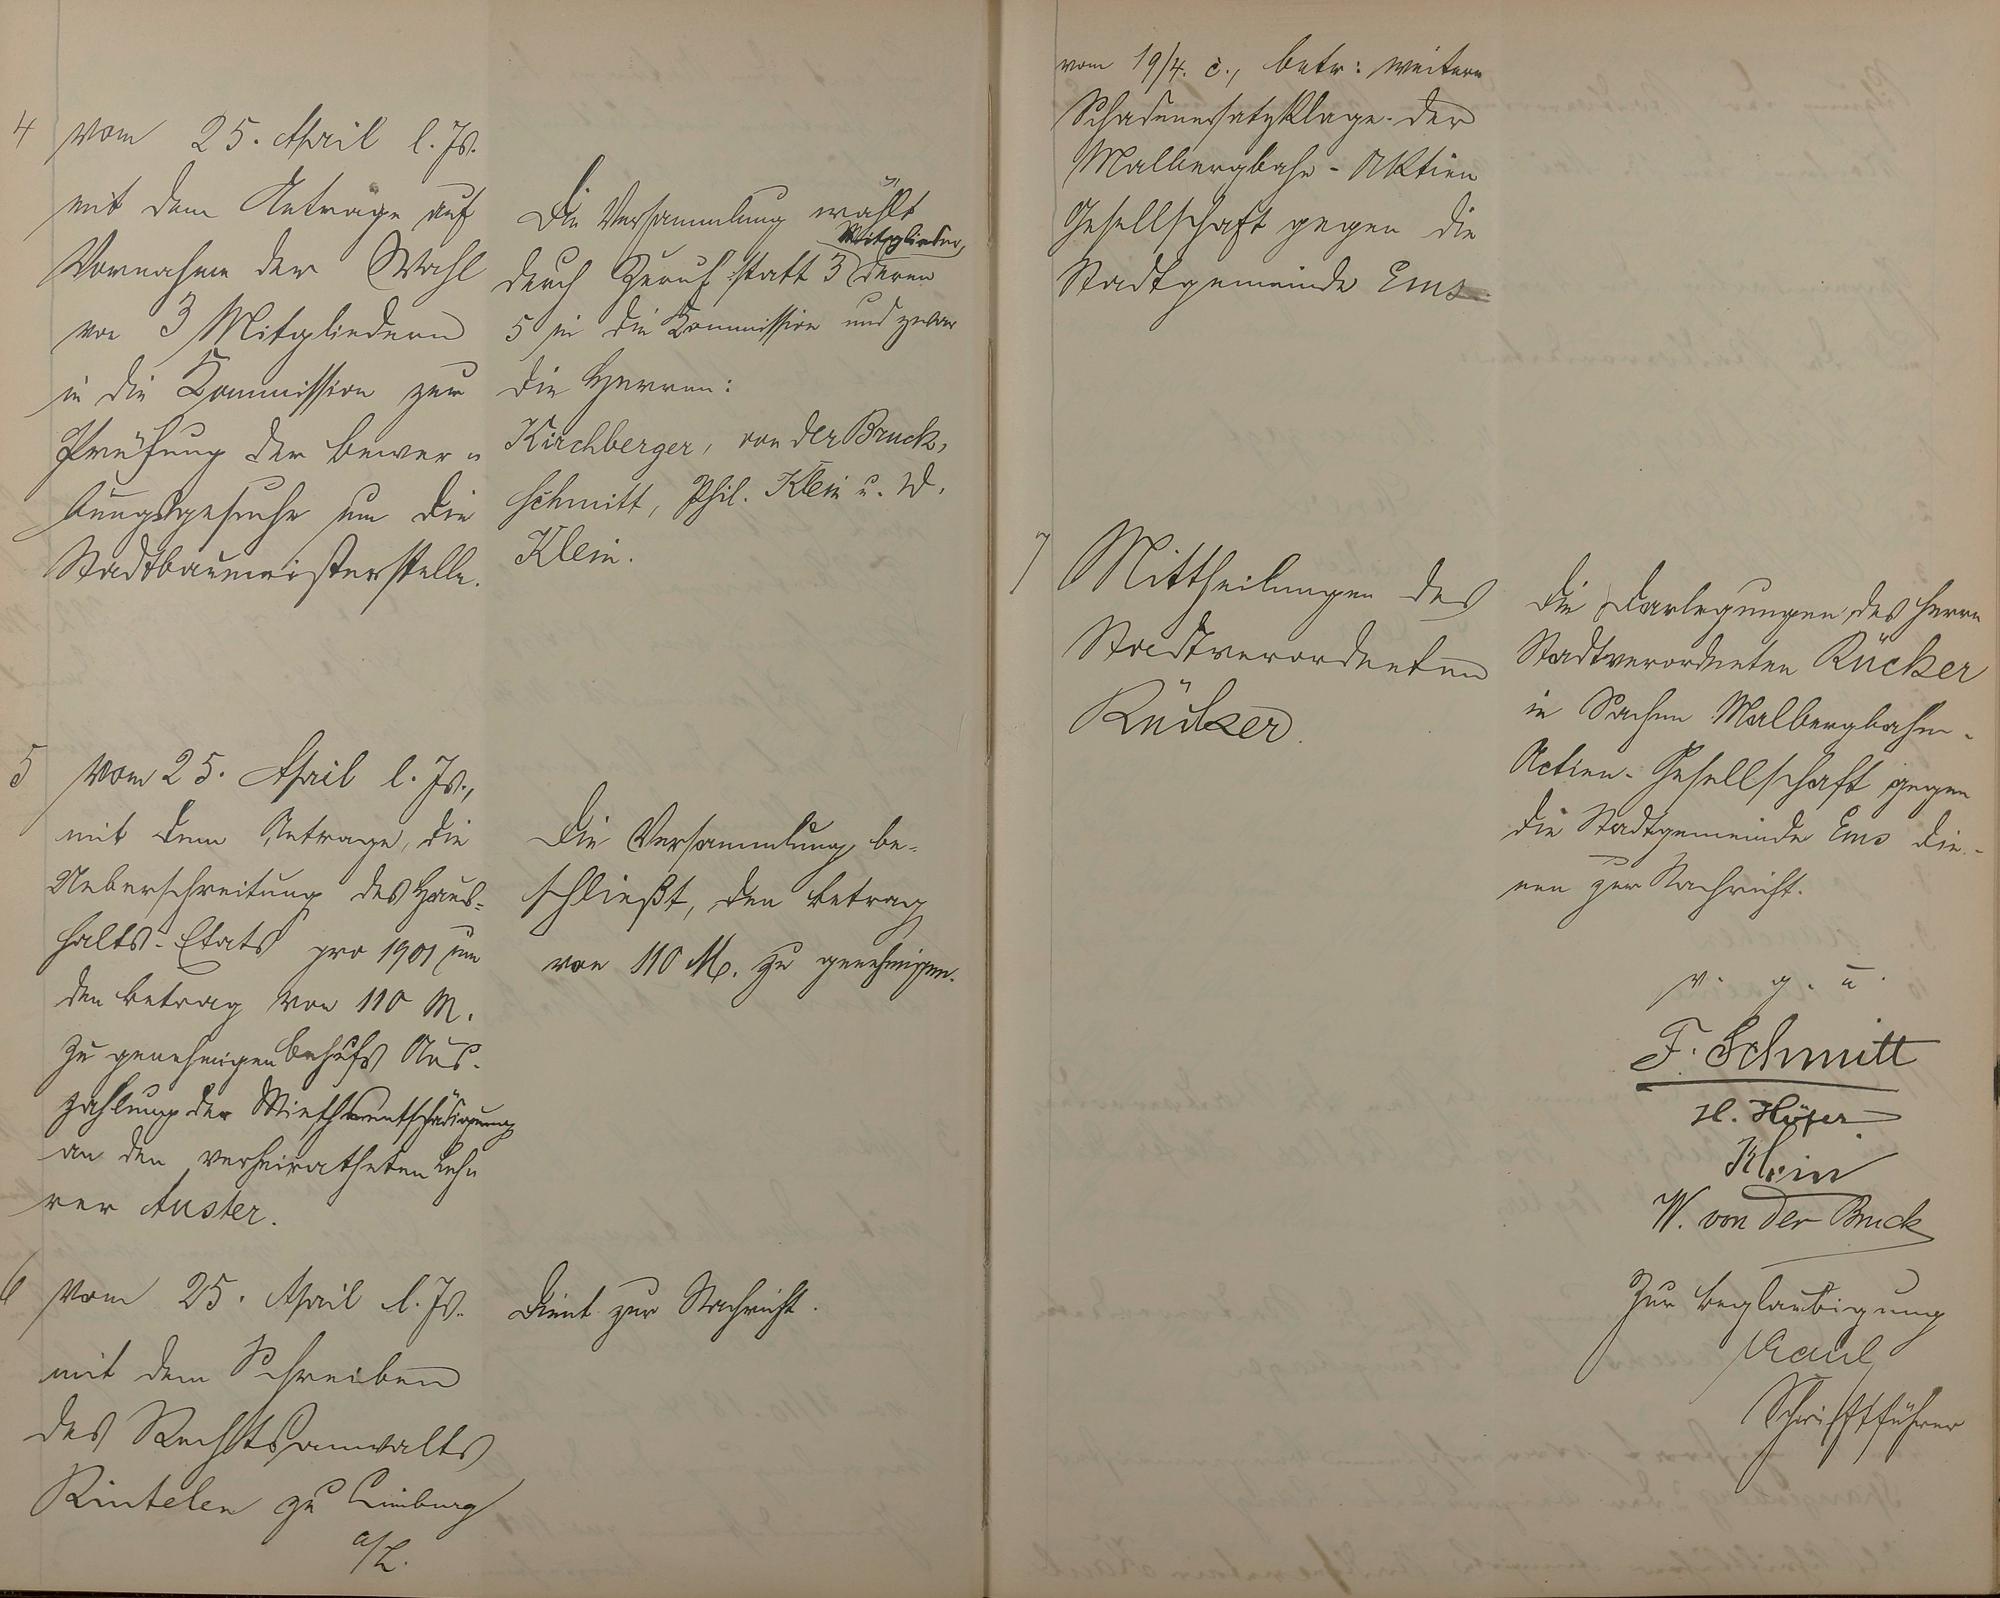 4 vom 25. April l. Js.
mit dem Antrage auf
Vornahme der Wahl
von 3 Mitgliedern
in die Kommission zur
Prüfung der Bewer-
bungsgesuche um die
Stadtbaumeisterstelle.
Die Versammlung wählt
durch Zuruf statt 3 Mitglieder, deren
5 in die Kommission und zwar
die Herren:
Kirchberger, von der Bruck,
Schmitt, Phil. Klein u. W.
Klein.
5 vom 25. April l. Js.,
mit dem Antrage, die
Ueberschreitung des Haus-
halts-Etats pro 1901 um
den Betrag von 110 M.
zu genehmigen behufs Aus-
zahlung der Miethsentschädigung
an den verheiratheten Leh-
rer Auster.
Die Versammlung be-
schließt, den Betrag
von 110 M. zu genehmigen.
6 vom 25. April l. Js.
mit dem Schreiben
des Rechtsanwalts
Rintelen zu Limburg
a/L.
Dient zur Nachricht.
vom 19/4. c., betr: weitere
Schadenersatzklage der
Malbergbahn-Aktien
Gesellschaft gegen die
Stadtgemeinde Ems
7 Mittheilungen des
Stadtverordneten
Rücker.
Die Darlegungen des Herrn
Stadtverordneten Rücker
in Sachen Malbergbahn-
Actien-Gesellschaft gegen
die Stadtgemeinde Ems die-
nen zur Nachricht.
v. g. u.
F. Schmitt
H. Höfer
Klein
W. von der Bruck
Zur Beglaubigung
Kaul
Schriftführer